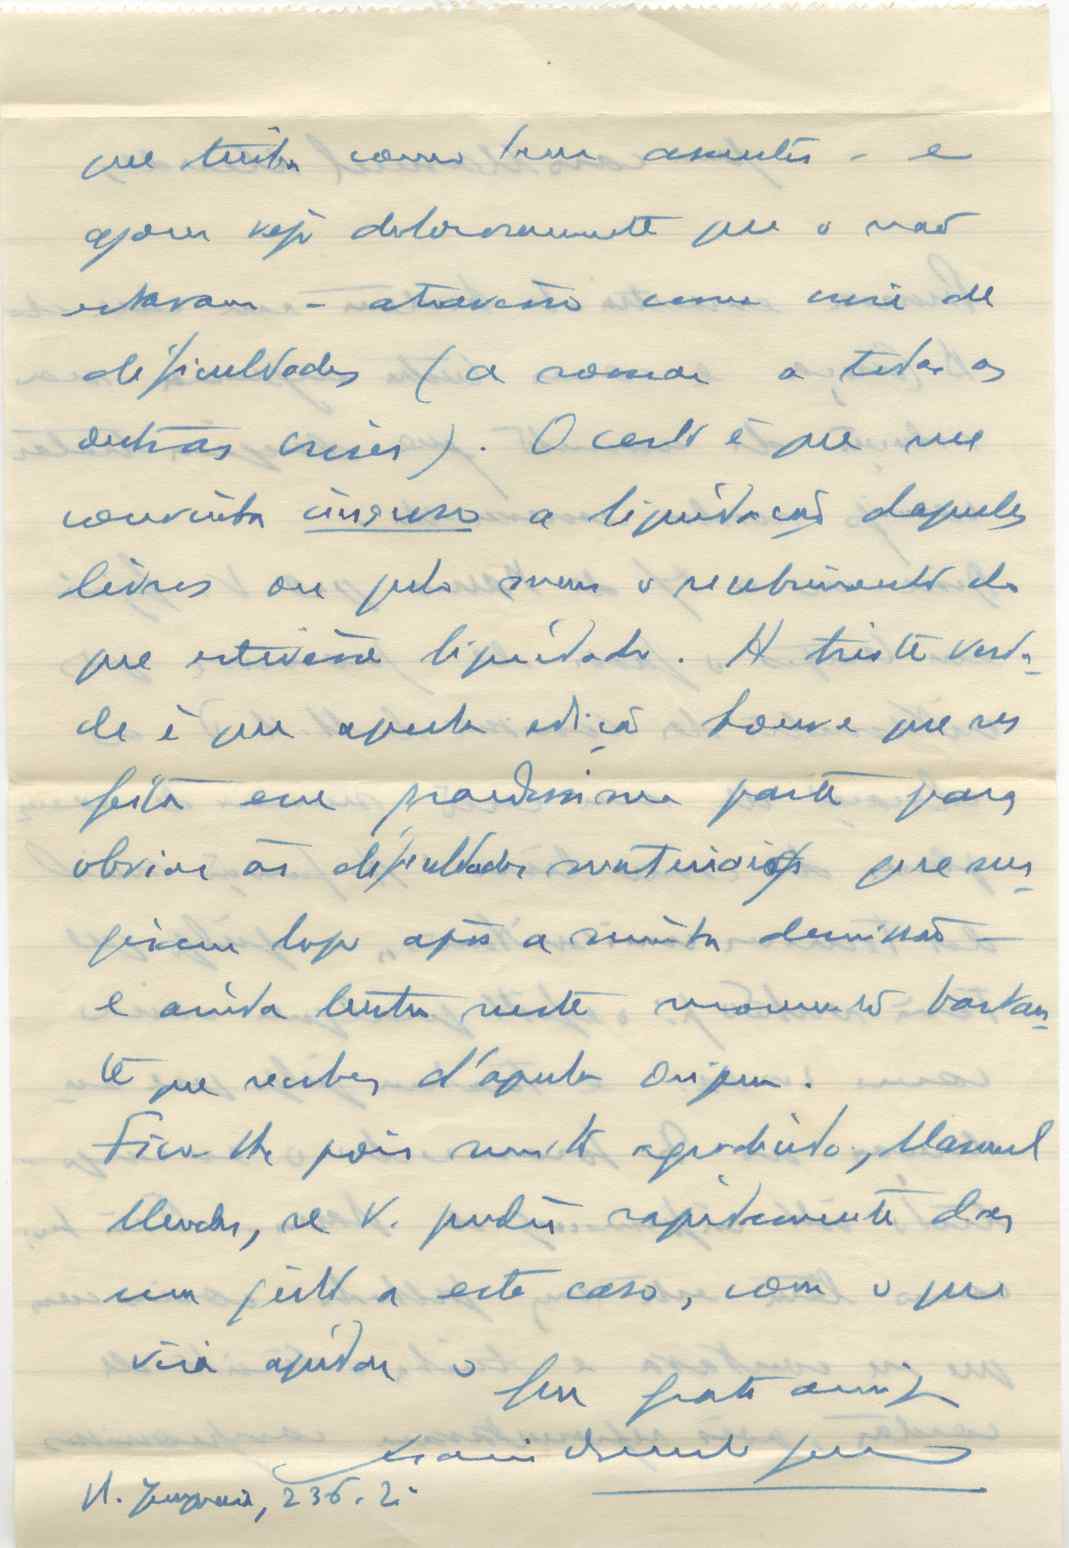 que tinha como bem assentes - e
agora vejo dolorosamente que o não
estavam - atravesso uma crise de
dificuldades (a somar a todas as
outras crises). O certo é que me
convinha imenso a liquidação daqueles
livros ou pelo menos o recebimento do
que estivesse liquidado. A triste verda-
de é que aquela edição houve que ser
feita em grandíssima parte para
obviar às dificuldades materiais que sur-
giram logo após a minha demissão -
e ainda tenho neste momento bastan-
te que receber d'aquela origem.
Fico-lhe pois muito agradecido, Manuel
Mendes, se V. puder rapidamente dar
um jeito a este caso, com o que
virá ajudar o
seu grato amigo
R. , 236. 2.